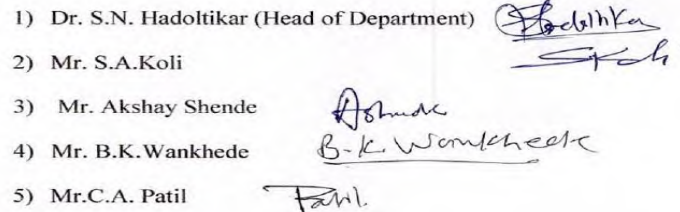 1) Dr. S.N. Hadoltikar (Head of Department) Hadoltikar
2) Mr. S.A.Koli SKoli
3) Mr. Akshay Shende AShende
4) Mr. B.K.Wankhede B.K. Wankhede
5) Mr.C.A. Patil Patil.